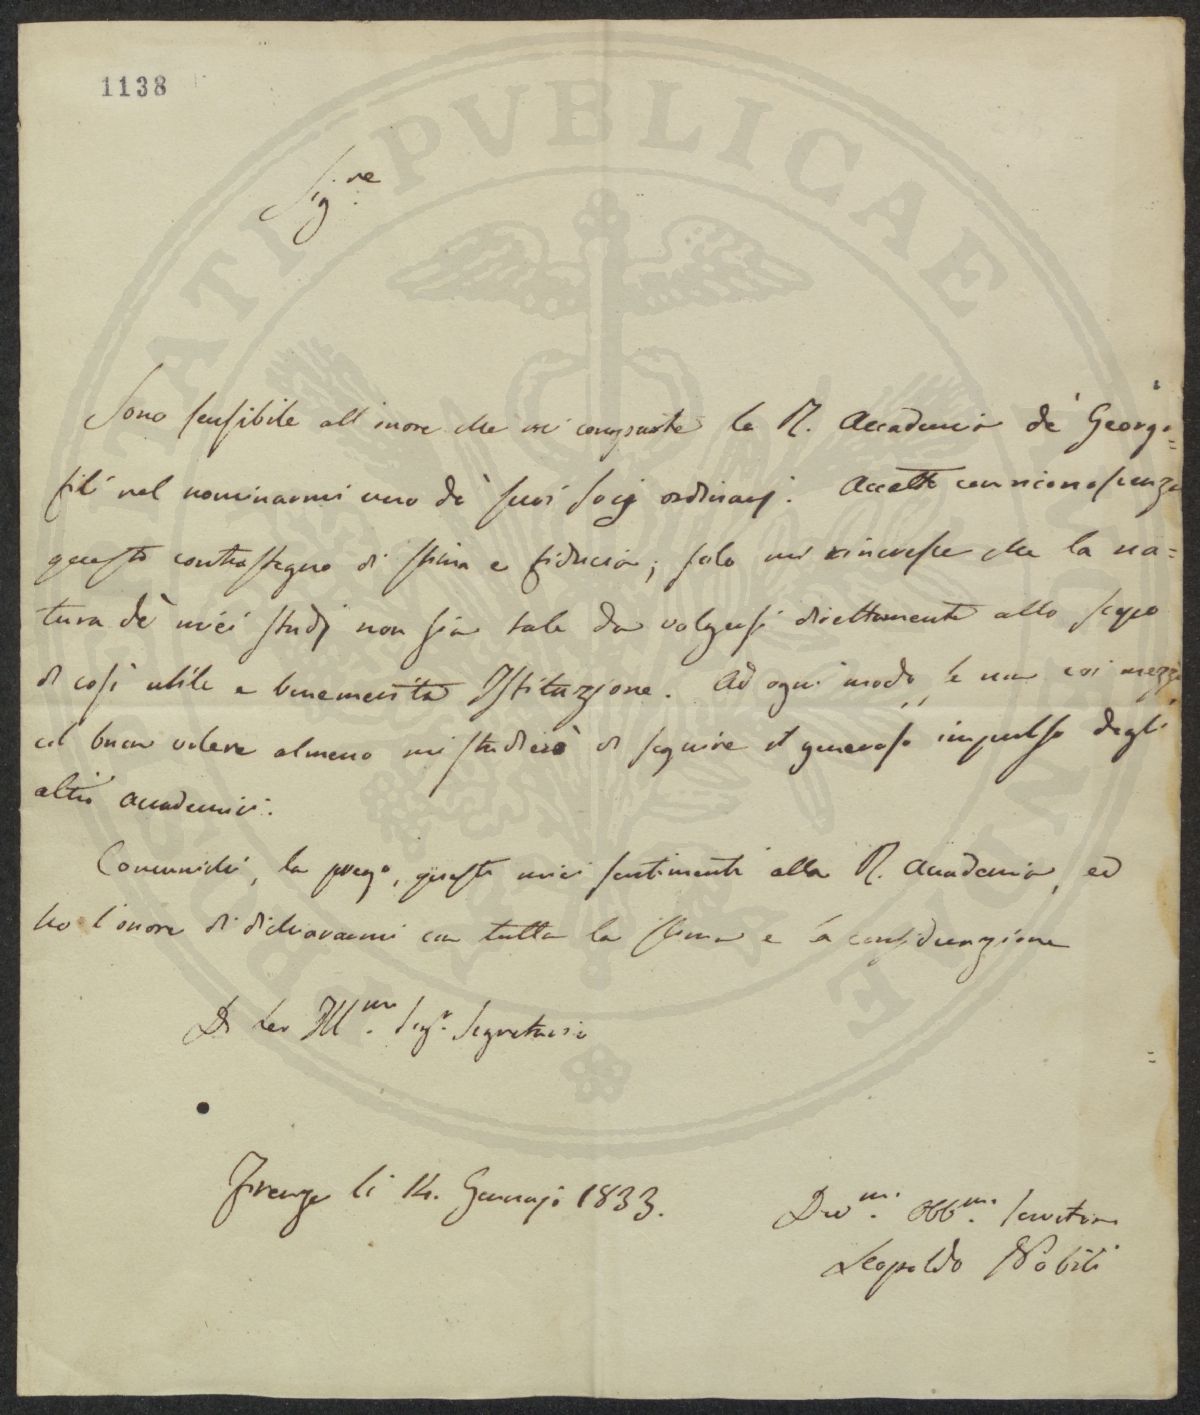 1138
Sig.re
Sono sensibile all'onore che mi comparte la R. Accademia de' Georgo=
fili nel nominarmi uno de' suoi Socij ordinarj. Accetto con riconoscenza
questo contrassegno di stima e fiducia; solo mi rincresce che la na=
tura de' miei studj non sia tale da volgersi direttamente allo scopo
di così utile e benemerita Istituzione. Ad ogni modo, se non coi mezzi,
col buon volere almeno mi studierò di seguire il generoso impulso degli
altri accademici.
Comunichi, la prego, questi miei sentimenti alla R. Accademia, ed
ho l'onore di dichiararmi con tutta la stima e la considerazione
Di Lei Ill.mo Sig.r Segretario
Firenze li 14. Gennajo 1833.
Dev.mo Obb.mo Servitore
Leopoldo Nobili
PUBLICAE